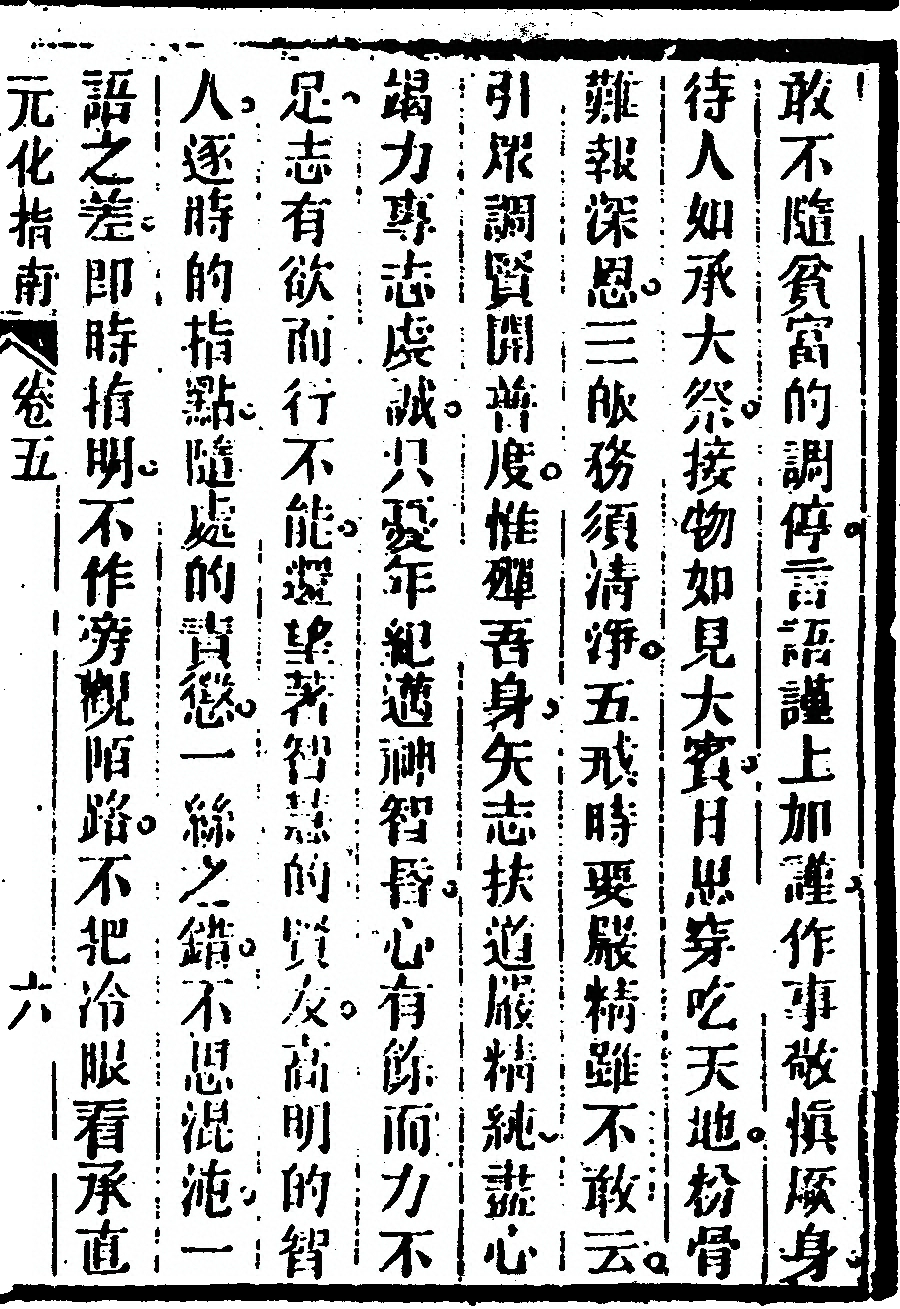 敢不隨貧富的調停。言語謹上加謹。作事敬慎厥身。
待人如承大祭。接物如見大賓。日思穿吃天地。粉骨
難報深恩。三皈務須清淨。五戒時要嚴精雖不敢云。
引眾調賢開普度。惟殫吾身。矢志扶道嚴精純。盡心
竭力專志虔誠。只憂年紀邁神智昏。心有餘而力不
足。志有欲而行不能。還望著智慧的賢友。高明的智
人。逐時的指點。隨處的責懲。一絲之錯。不思混沌。一
語之差。即時指明。不作旁觀陌路。不把冷眼看承直
元化指南 卷五 六